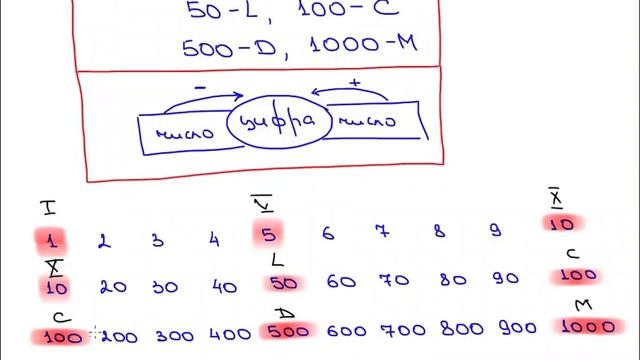 50-L, 100-C
500-D, 1000-M
- +
число цифра число
I V X
1 2 3 4 5 6 7 8 9 10
X L C
10 20 30 40 50 60 70 80 90 100
C D M
100 200 300 400 500 600 700 800 900 1000